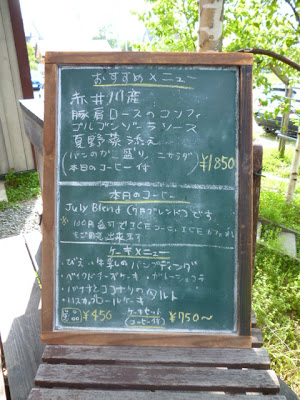 おすすめメニュー
赤井川産
豚肩ロースのコンフィ
ゴルゴンゾーラソース
夏野菜添え
(パンのかご盛り、ミニサラダ
本日のコーヒー付) ¥1850
本月のコーヒー
July Blend (7月ブレンド)です
ケーキメニュー
びえい牛乳のパンプディング
ベイクドチーズケーキ ガトーショコラ
バナナとココナツのタルト
ハスカップロールケーキ
単品 ¥450
ケーキセット
(コーヒー付) ¥750〜